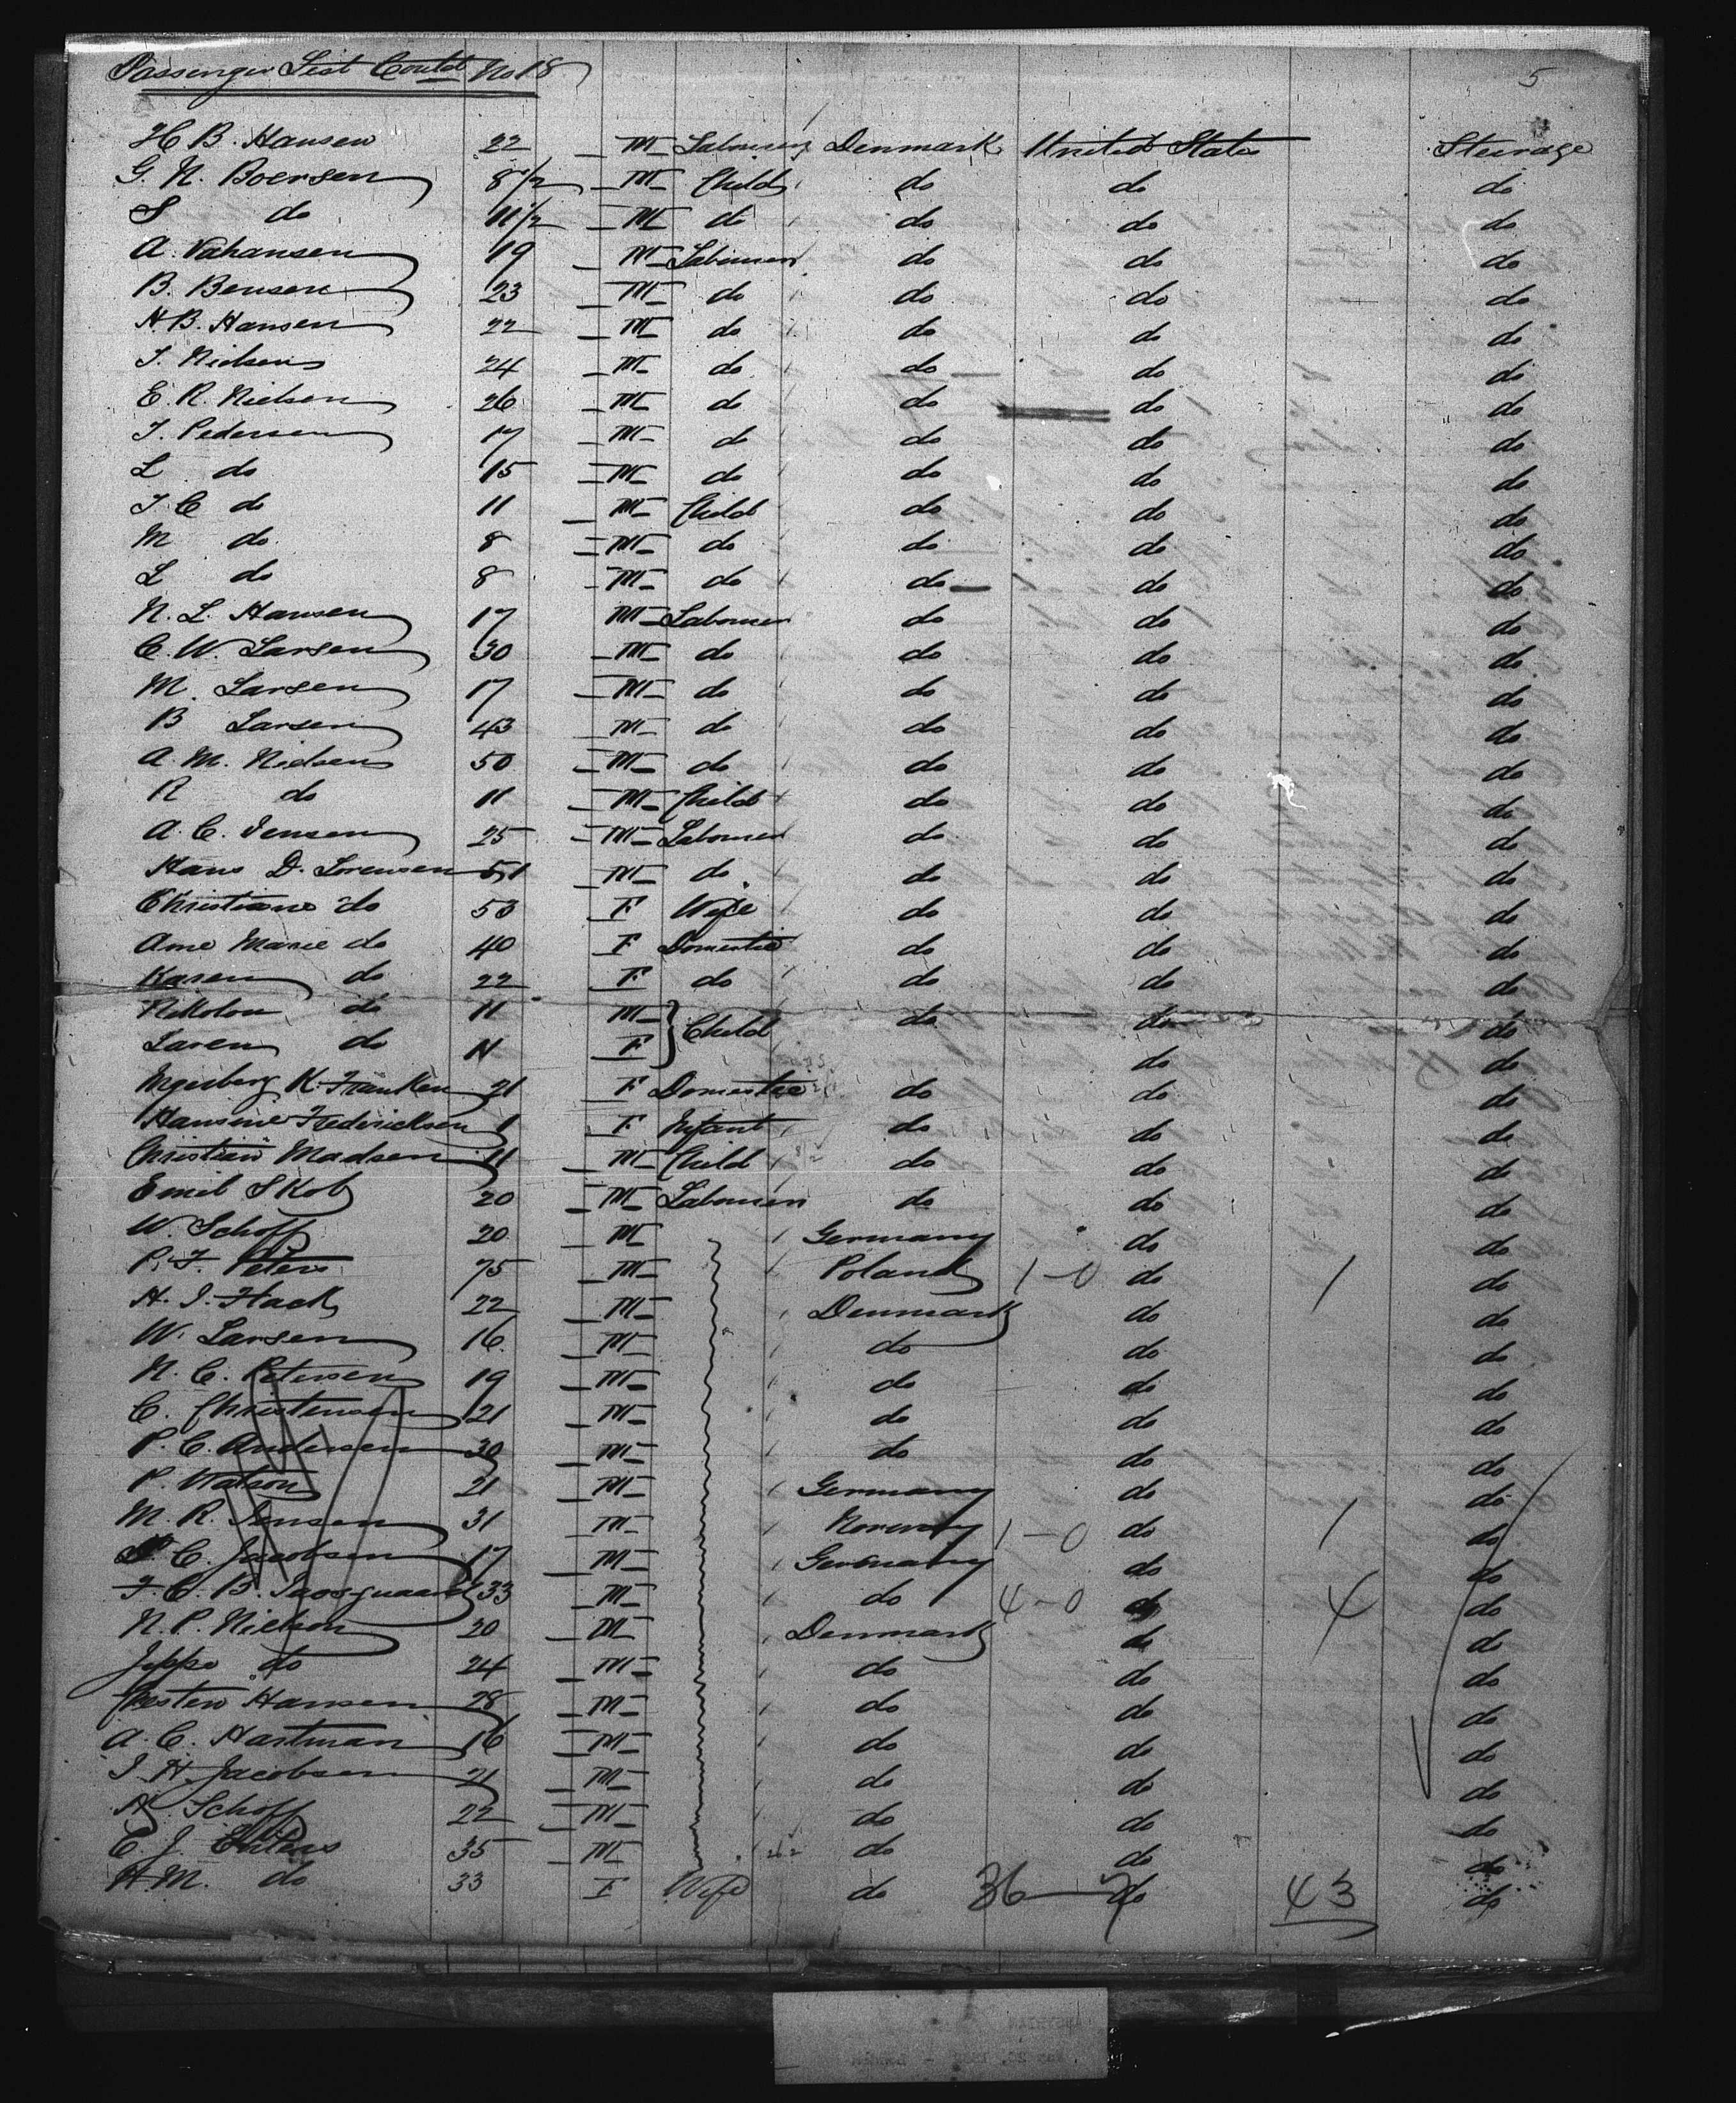 Passenger List Contd No 18
5
H B. Hansen 22 M Labourer Denmark United States Steerage
G. N. Boersen 8 1/2 M Child do do do
S do 11 1/2 M do do do do
A. Vahansen 19 M Labourer do do do
B. Bensen 23 M do do do do
H. B. Hansen 22 M do do do do
J. Nielsen 24 M do do do do
E. R. Nielsen 26 M do do do do
J. Pedersen 17 M do do do do
L do 15 M do do do do
J. C do 11 M Child do do do
M do 8 M do do do do
L do 8 M do do do do
N. L. Hansen 17 M Labourer do do do
C. W. Larsen 30 M do do do do
M. Larsen 17 M do do do do
B Larsen 43 M do do do do
A. M. Nielsen 50 M do do do do
R do 11 M Child do do do
A. C. Jensen 25 M Labourer do do do
Hans D. Lorensen 51 M do do do do
Christiane do 53 F Wife do do do
Ane Marie do 40 F Domestic do do do
Karen do 22 F do do do do
Nikolou do 11 M Child do do do
Laren do 11 F do do
Ingerberg K. Franken 21 F Domestic do do do
Hansine Fredericksen 1 F Infant do do do
Christian Madsen 11 M Child do do do
Emil Skob 20 M Labourer do do do
W. Schoff 20 M Germany do do
P. F. Peters 75 M Poland 1-0 do 1 do
H. J. Flack 22 M Denmark do do
W. Larsen 16 M do do do
N. C. Petersen 19 M do do do
C. Christensen 21 M do do do
P. C. Andersen 30 M do do do
P. Watson 21 M Germany do do
M. R. Jensen 31 M Norway 1-0 do 1 do
C. Jacobsen 17 M Germany do do
F. C. B. 33 M do 4-0 do 4 do
N. P. Nielson 20 M Denmark do do
Jeppe do 24 M do do do
Chesten Hansen 28 M do do do
A. C. Hartman 16 M do do do
J. H. Jacobsen 21 M do do do
A. Schoff 22 M do do do
C. J. 35 M do do do
H. M. do 33 F Wife do 36-7 do 43 do